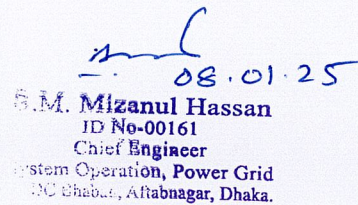 08.01.25
S.M. Mizanul Hassan
ID No-00161
Chief Engineer
System Operation, Power Grid
Aftabnagar, Dhaka.